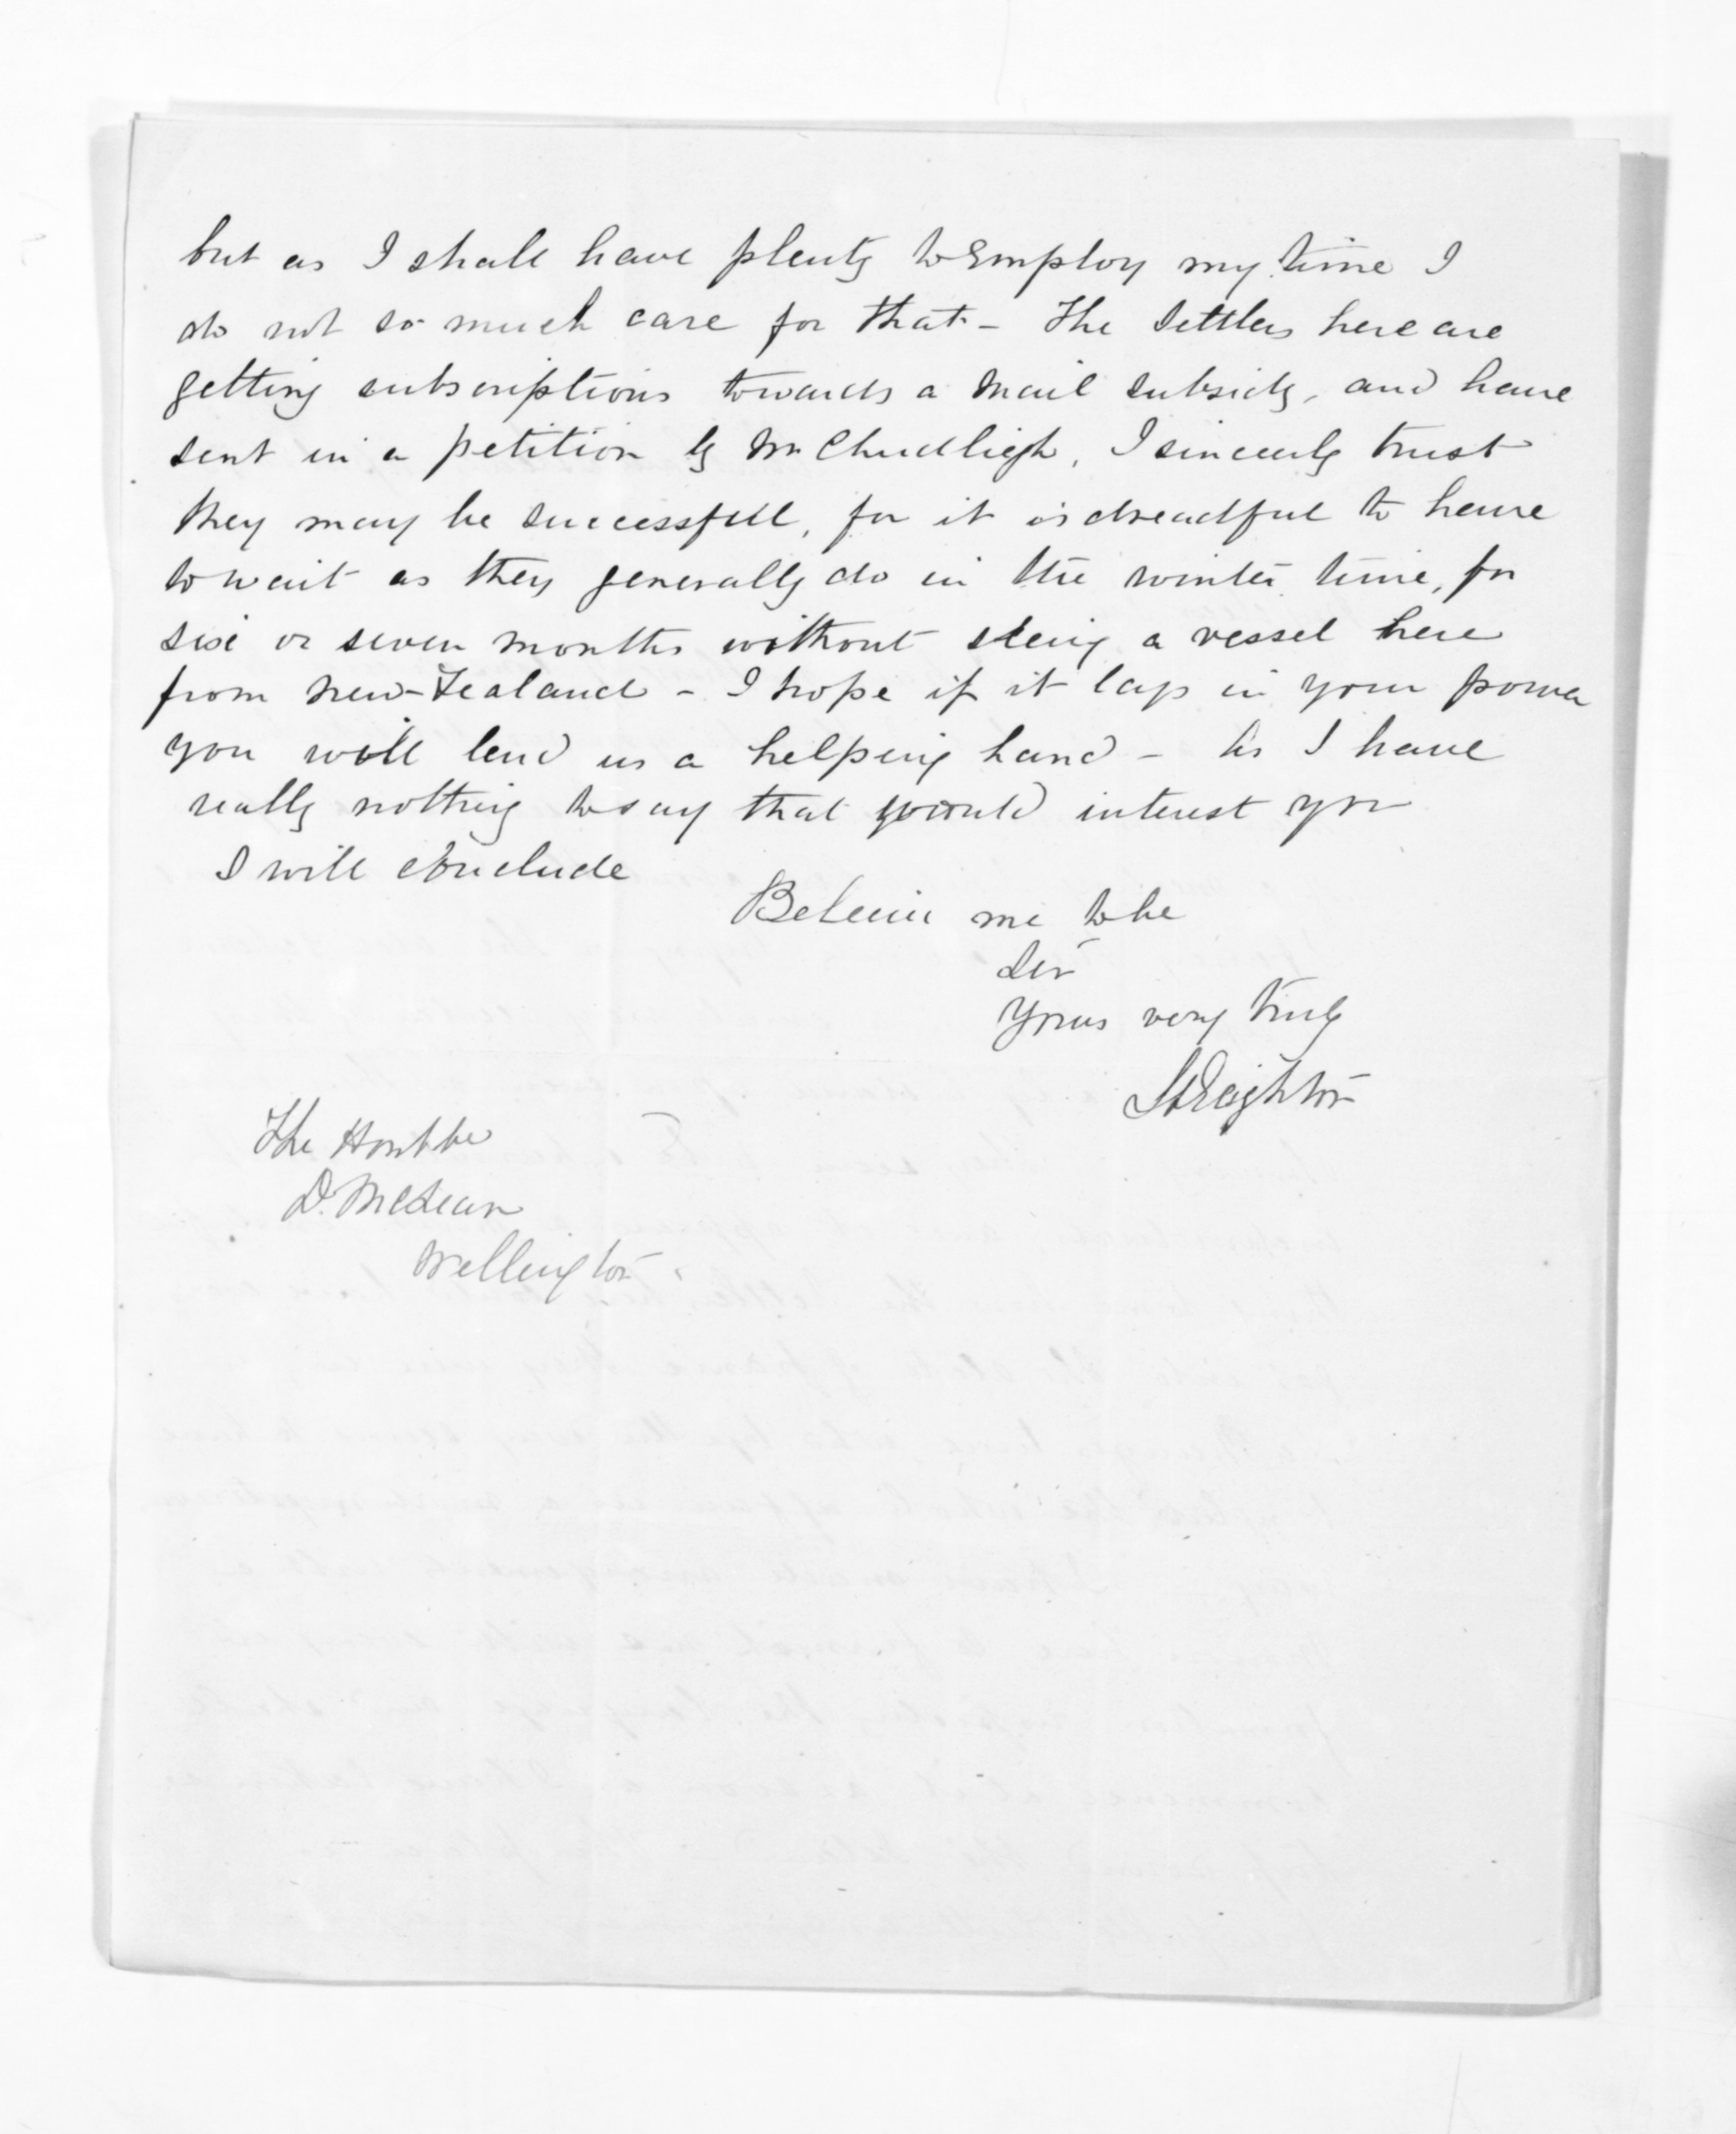 but as I shall have plenty to Employ my time I
do not so much care for that - The Settlers here are
getting subscriptions towards a Mail subsidy, and have
sent in a petition by Mr Chudligh, I sincerely trust
they may be successfull, for it is dreadful to have
to wait as they generally do in the winter time, for
six or seven months without seeing a vessel here
from New-Zealand - I hope if it lays in your power
you will lend us a helping hand - As I have
really nothing to say that would interest you
I will conclude
Believe me to be
Sir
Yours very truly
Deighton
The Honble
D. McLean
Wellington.